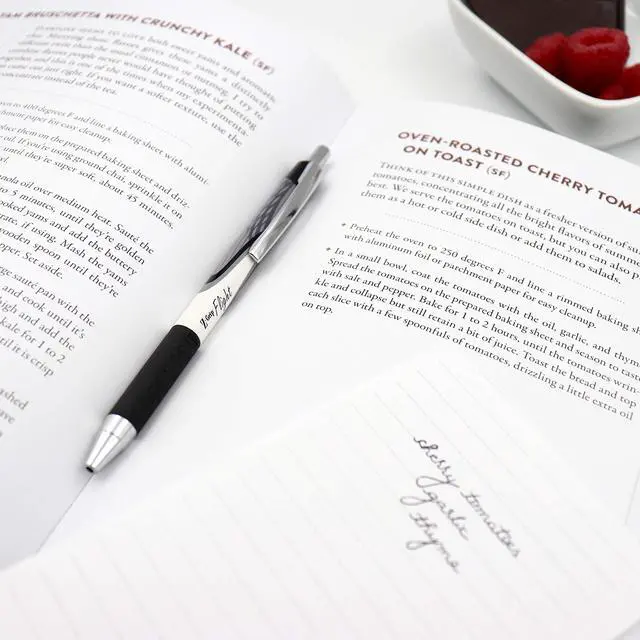 YAM BRUSCHETTA WITH CRUNCHY KALE (SF)
EVERYONE SEEMS TO LOVE both sweet yams and
to 400 degrees F and line a baking sheet with alumi-
paper for easy cleanup.
place them on the prepared baking sheet and driz-
If you're using ground chai, sprinkle it on
until they're super soft, about 45 minutes.
oil over medium heat. Sauté the
to 5 minutes, until they're golden
cooked yams and add the buttery
if using. Mash the yams
wooden spoon until they're
pepper. Set aside.
large sauté pan with the
and cook until it's
high and add the
kale for 1 to 2
til it is crisp
ashed
ave
Your Flight
OVEN-ROASTED CHERRY TOMA
ON TOAST (SF)
THINK OF THIS SIMPLE DISH as a fresher version of su
tomatoes, concentrating all the bright flavors of summe
best. We serve the tomatoes on toast, but you can also
them as a hot or cold side dish or add them to salads.
+ Preheat the oven to 250 degrees F and line a rimmed baking sh
with aluminum foil or parchment paper for easy cleanup.
+ In a small bowl, coat the tomatoes with the oil, garlic, and thym
Spread the tomatoes on the prepared baking sheet and season to tas
with salt and pepper. Bake for 1 to 2 hours, until the tomatoes wrin-
kle and collapse but still retain a bit of juice. Toast the bread and top
each slice with a few spoonfuls of tomatoes, drizzling a little extra oil
on top.
cherry tomatoes
garlic
thyme